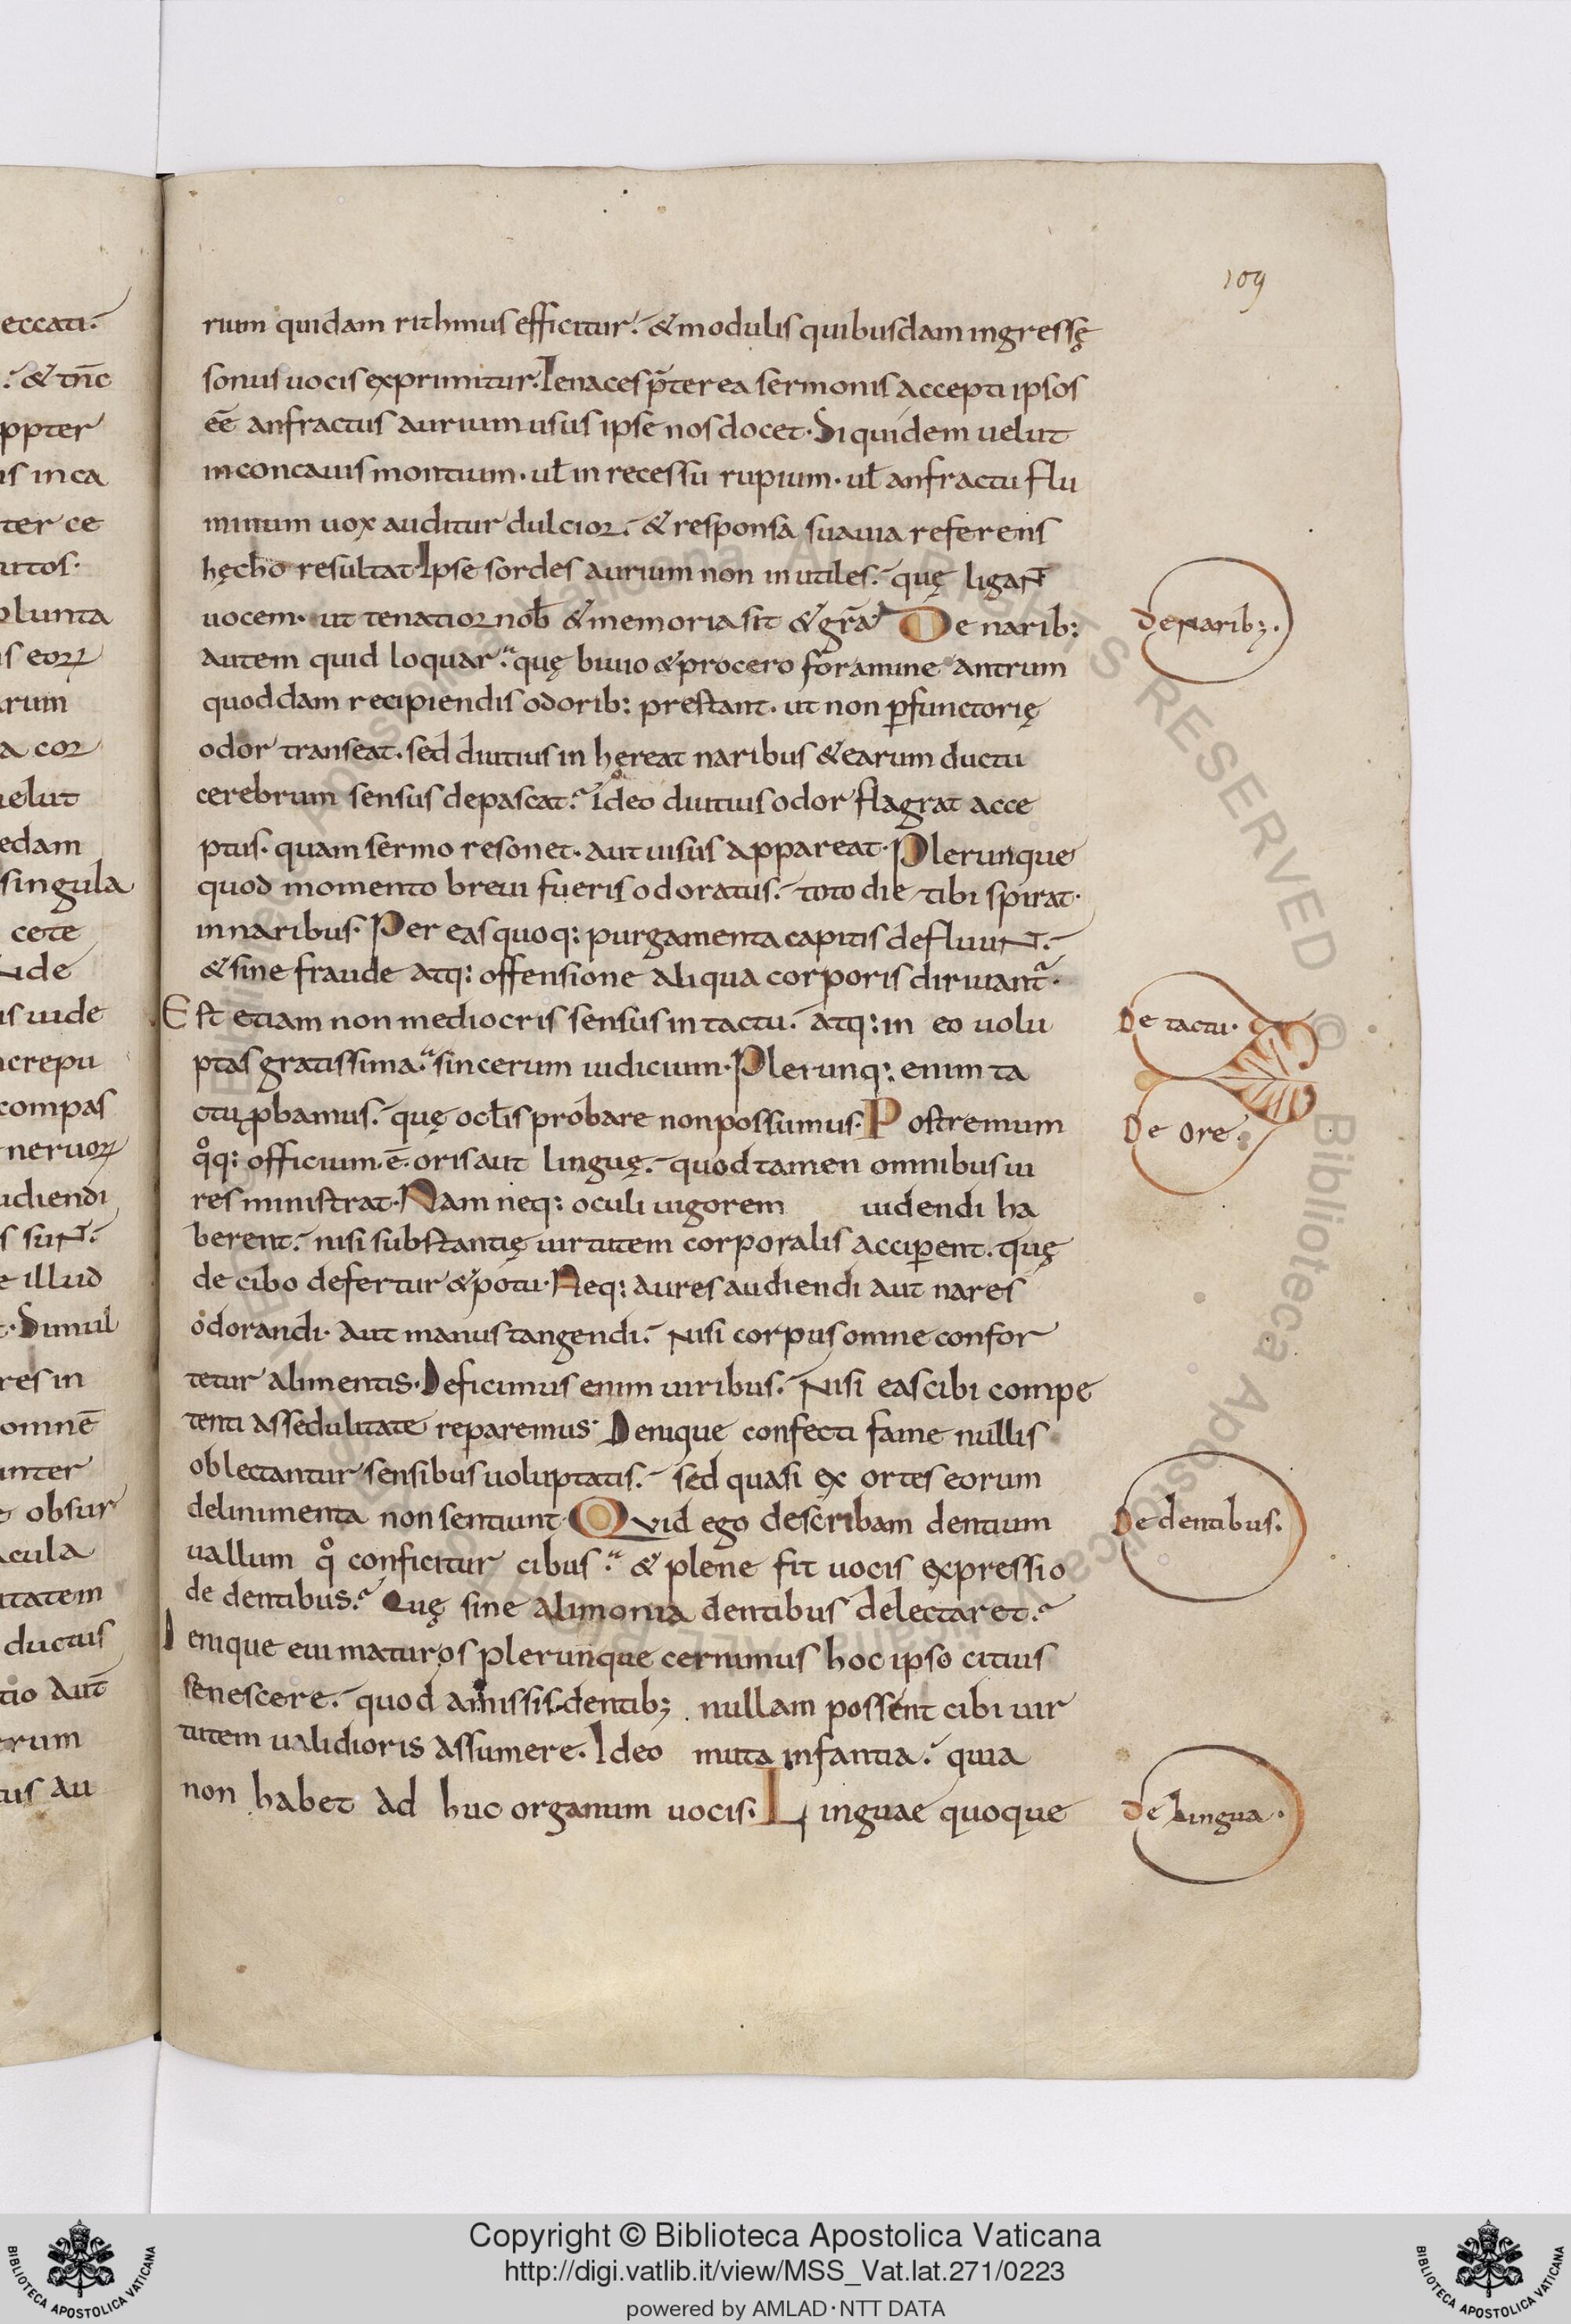 109
rum quidam rithmus efficitur. & modulis quibusdam ingressę
sonus uocis exprimitur. Tenaces p̄terea sermonis accepti ipsos
eē anfractus aurium usus ipse nos docet. Siquidem uelut
in concauis montium. ul̄ in recessu rupium. ul̄ anfractu flu
minum uox auditur dulcior. & responsa suauia referens
hęcho resultat. Ipse sordes aurium non inutiles. quę ligant
uocem. ut tenatior nob̄ & memoria sit & gr̄a. De narib:
autem quid loquar. quę biuio & procero foramine antrum
quoddam recipiendis odorib: prestant. ut non p̲functorię
odor transeat. sed diutius in hęreat naribus & earum ductu
cerebrum sensus depascat. Ideo diutius odor flagrat acce
ptus. quam sermo resonet. aut uisus appareat. Plerunque
quod momento breui fueris odoratus. toto die tibi spirat.
in naribus. Per eas quoq: purgamenta capitis defluunt.
& sine fraude atq: offensione aliqua corporis diriuant᷑.
Est etiam non mediocris sensus in tactu. atq: in eo uolu
ptas gratissima. sincerum iudicium. Plerunq: enim ta
ctu ꝓbamus. quę ocl̄is probare non possumus. Postremum
qͦq: officium. ē. oris aut linguę. quod tamen omnibus ui
res ministrat. Nam neq: oculi uigorem uidendi ha
berent. nisi substantię uirtutem corporalis accip̲ent. quę
de cibo defertur & potu. Neq: aures audiendi aut nares
odorandi. aut manus tangendi. Nisi corpus omne confor
tetur alimentis. Deficimus enim uiribus. Nisi eas cibi compe
tenti assedulitate reparemus. Denique confecti fame nullis
oblectantur sensibus uoluptatis. sed quasi ex ortes eorum
delinimenta non sentiunt. Quid ego describam dentium
uallum qͦ conficitur cibus. & plene fit uocis expressio
de dentibus. Quę sine alimonia dentibus delectaret.
Denique eui maturos plerunque cernimus hoc ipso citius
senescere. quod amissis dentibꝫ nullam possent cibi uir
tutem ualidioris assumere. Ideo muta infantia. quia
non habet ad huc organum uocis. Linguae quoque
de naribꝫ.
De tactu.
De ore.
De dentibus.
de Lingua.
eccati.
& tn̄c
ppter
is in ca
ter ce
utos.
olunta
is eoꝝ
arum
a cor
uelut
edam
singula
cete
nde
is uide
ncrepu
compas
neruoꝝ
udiendi
s sunt.
e illud
t. Simul
res in
omnē
unter
e obsur
acula
itatem
ductus
tio aut
erum
tus au
Copyright © Biblioteca Apostolica Vaticana
http://digi.vatlib.it/view/MSS_Vat.lat.271/0223
powered by AMLAD·NTT DATA
BIBLIOTECA APOSTOLICA VATICANA
BIBLIOTECA APOSTOLICA VATICANA